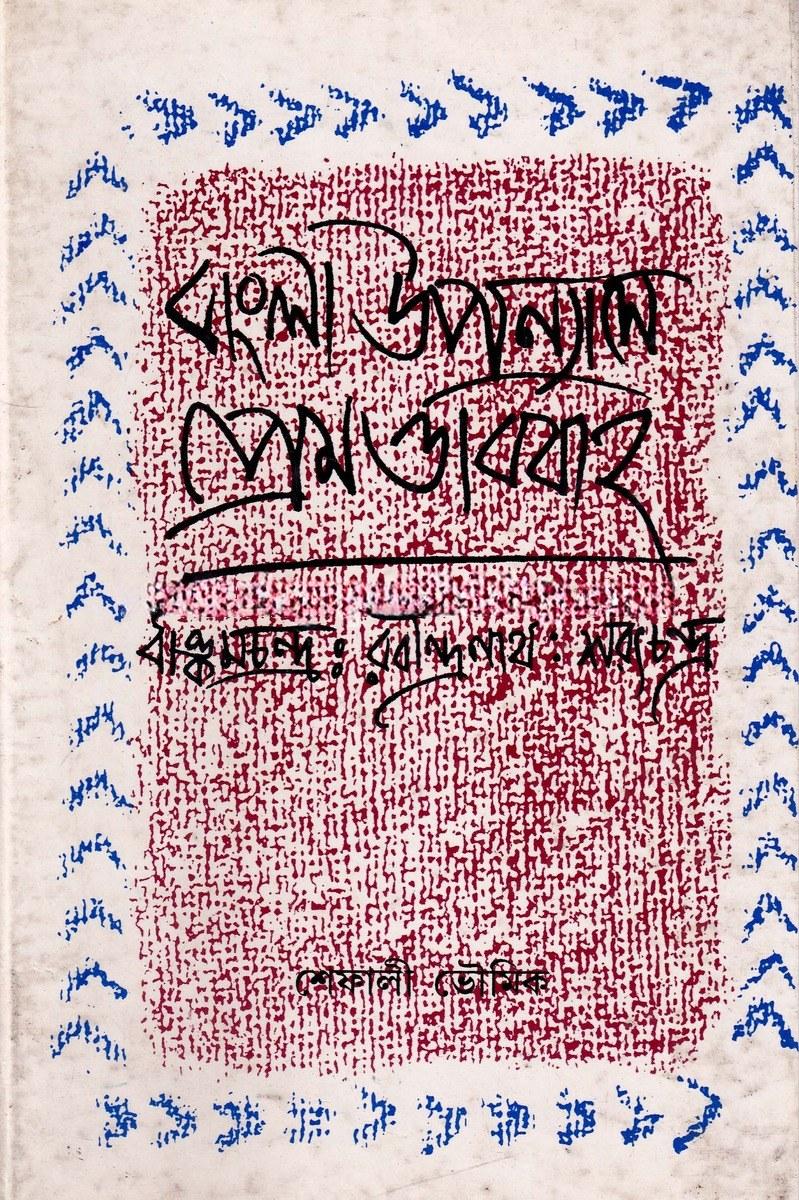 বাংলা উপন্যাসে
প্রেম ও বিবাহ
বঙ্কিমচন্দ্র : রবীন্দ্রনাথ : শরৎচন্দ্র
শেফালী ভৌমিক